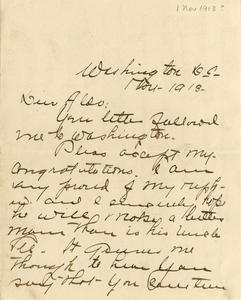 1 Nov 1913?
Washington D.C.
Nov. 1913.
Dear
Your letter followed
me to Washington.
Pleas accept my
congratulations. I am
very proud of my neph-
ew and I
he will make a better
man than is his uncle
It me
though to hear you
say that you